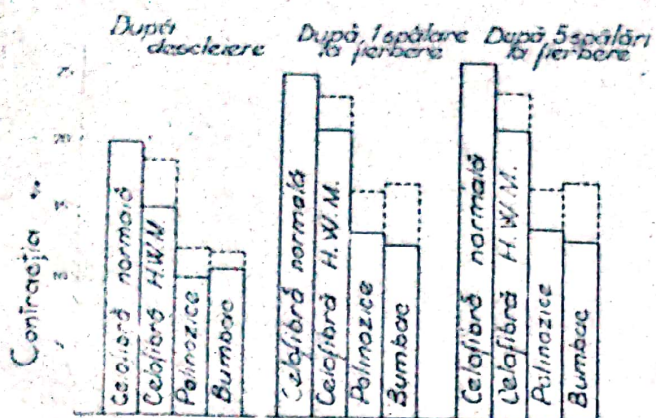 După
descleiere
După 1 spălare
la fierbere
După 5 spălări
la fierbere
Contracția %
20
Celofibră normală
Celofibră H.W.M.
Polinozice
Bumbac
Celofibră normală
Celofibră H.W.M.
Polinozice
Bumbac
Celofibră normală
Celofibră H.W.M.
Polinozice
Bumbac